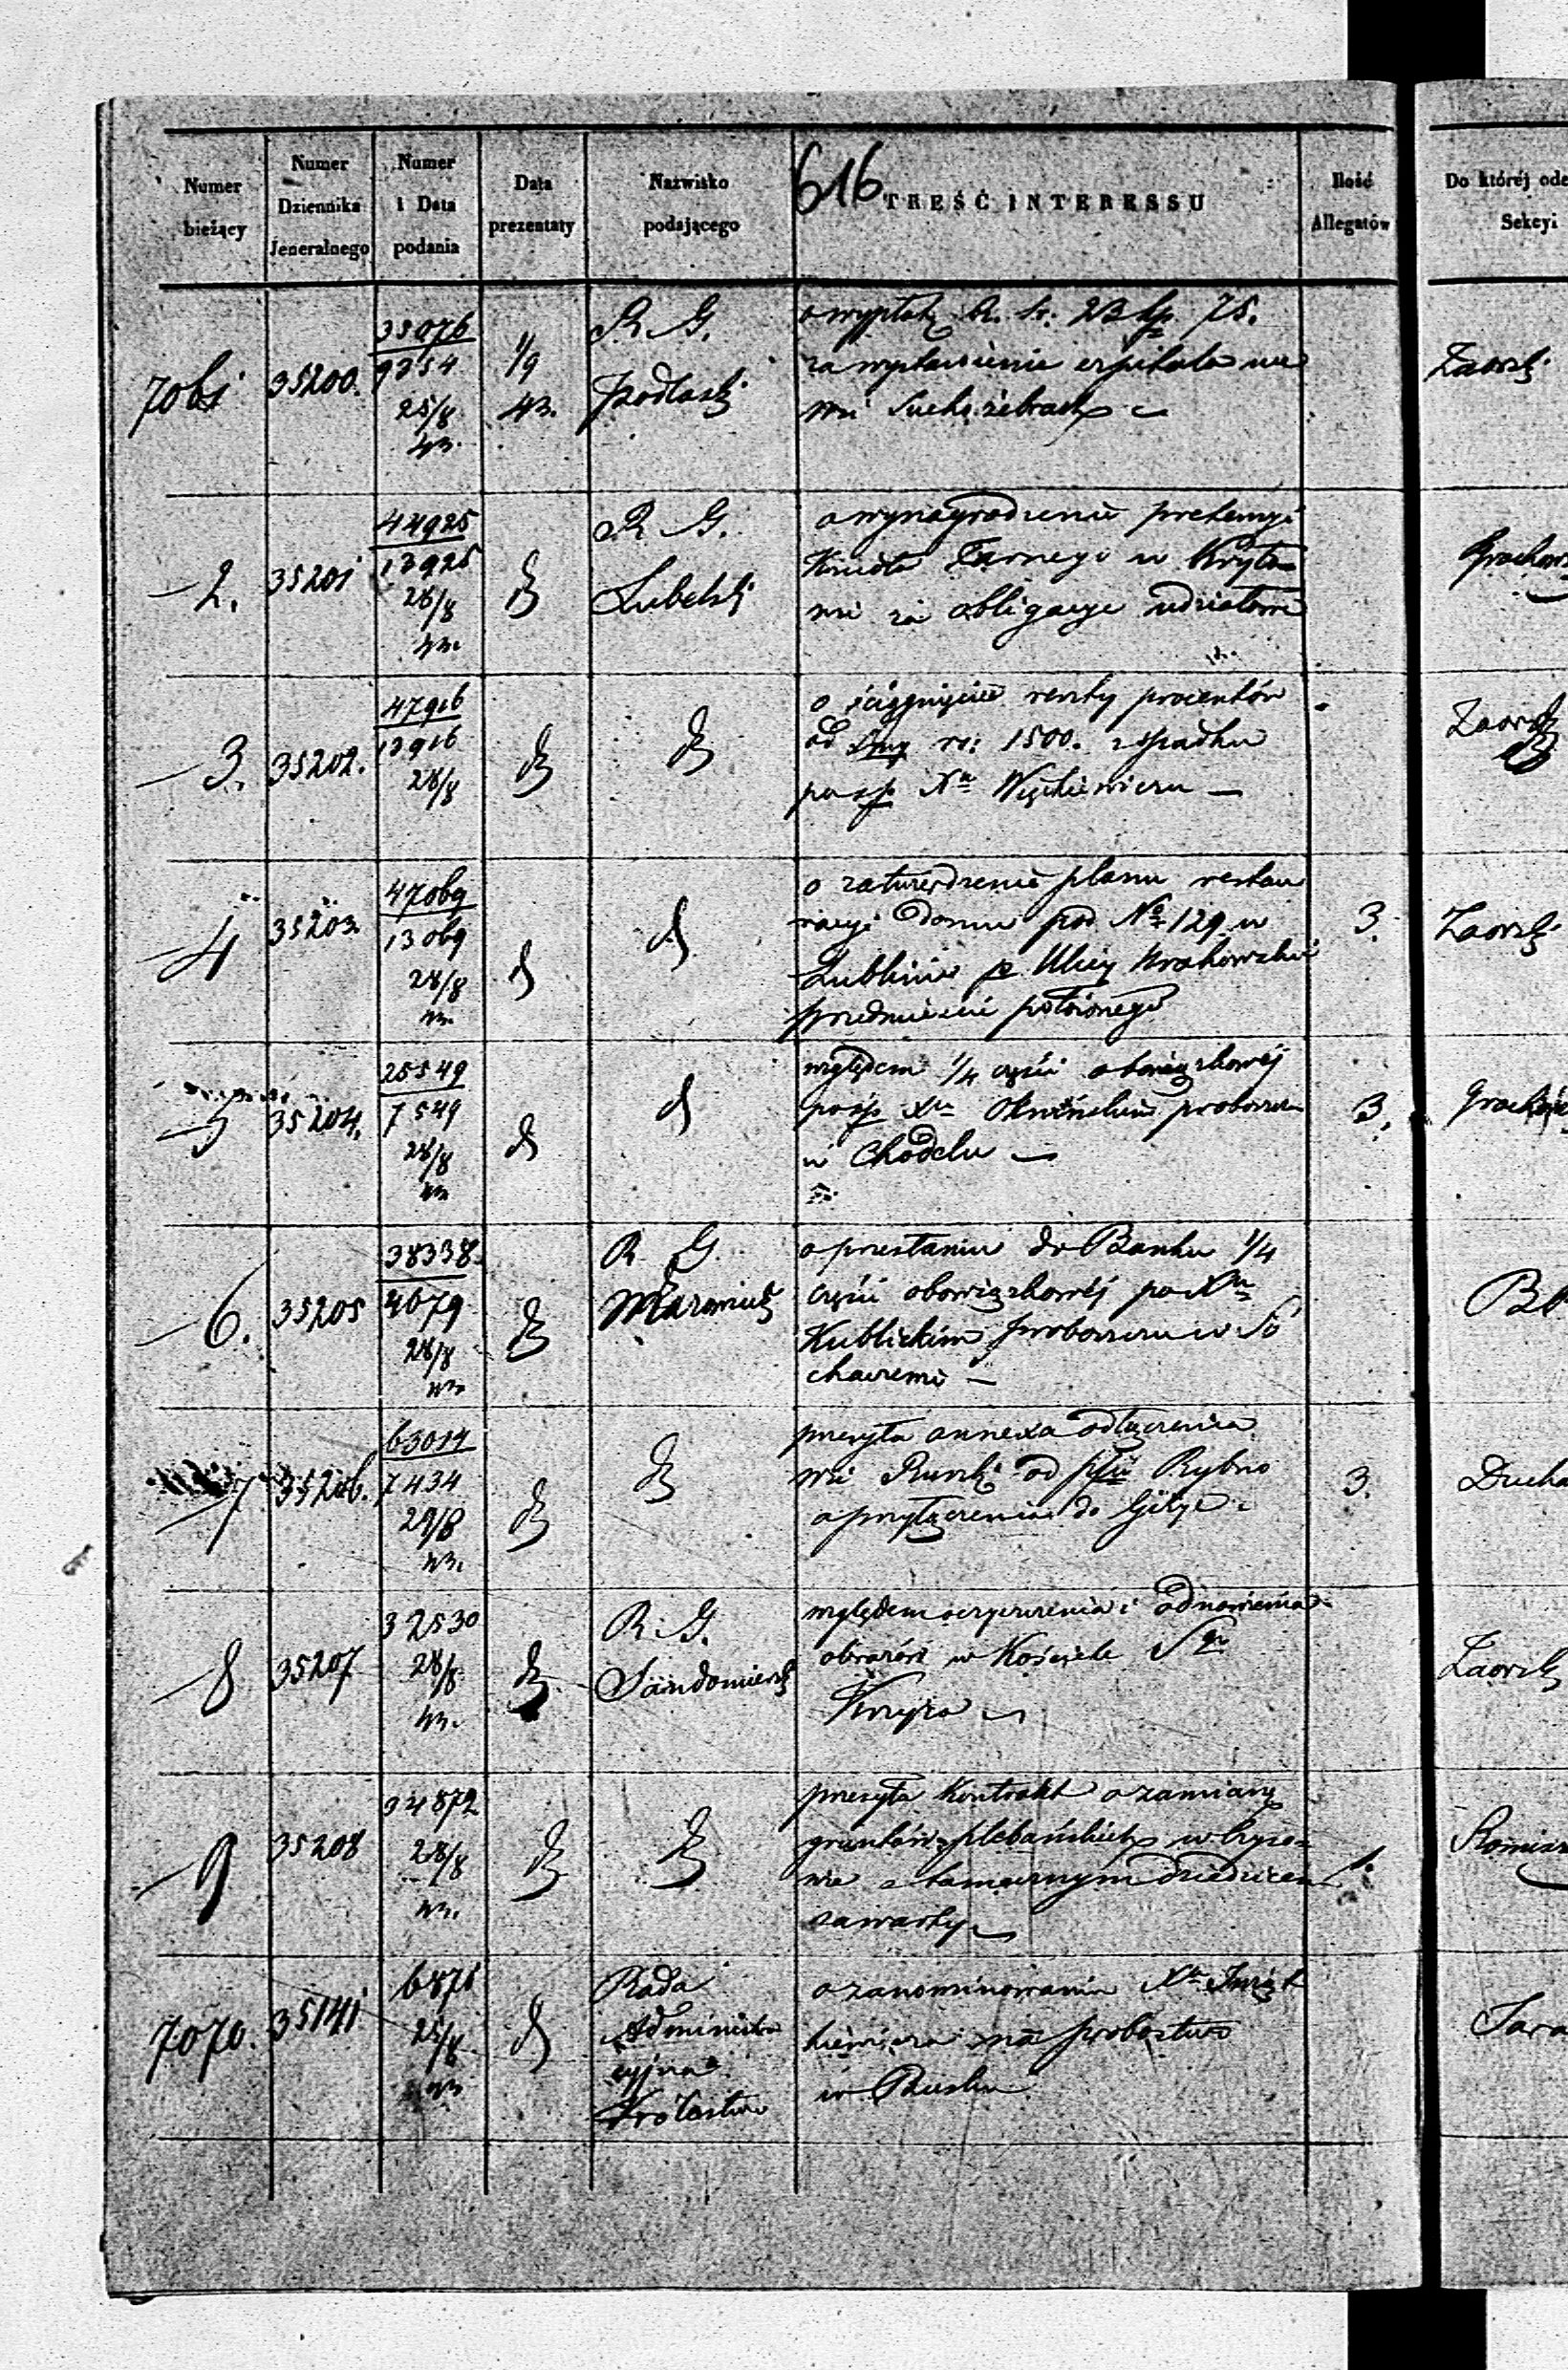 616
Numer bieżący
Numer Dziennika Jeneralnego
Numer i Data podania
Data prezentaty
Nazwisko podającego
TREŚĆ INTERESSU
Ilość Allegatów
Do której ode
Sekcyi
7061 35200. 35076 9254 25/8 43. 1/9 43. R. G. Podlaski
o wypłatę R. sr. 23 kp. 75.
za wystawienie szpitala we
wsi Suchożebrach
Zaorsk
2. 35201 44925 13925 28/8 43. R. G. Lubelski
o wynagrodzenie pretensyi
Kościoła Farnego w Kryło
wie za obligacye udziałowe
Grochows
3. 35202. 47916 13916 28/8
o ściągnięcie reszty procentów
od Sumy 1500. z spadku
po sp Xu
Zaorsk
4 35203. 47069 13069 28/8 43.
o zatwierdzenie planu restau
racyi domu pod No 129 w
Lublinie p Ulicy Krakowskie
przedmieście położonego
3. Zaorsk
5 35204. 25549 7549 28/8 43
względem 1/4 części obowiązkowéj
po sp Xu proboszczu
w Chodelu
3. Grochows
6. 35205 38338. 4079 28/8 43 R. G. Mazowiecki
o przesłaniu do Banku 1/4
części obowiązkowéj po Xu
Kublickim proboszczu w So
chaczewie
7 35206. 63014 7434 29/8 43.
przesyła annexa odłączenia
wsi Ruszki od pfii Rybno
a przyłączenia do Giżyc
3. Ducho
8 35207 32530 28/8 43. R. G. Sandomierski
względem oczyszczenia i odnowienia
obrazów w Kościele Sgo
Krzyża
Zaorsk
9 35208 34872 28/8 43.
przesyła Kontrakt o zamianę
gruntów plebańskich w
wie z tamecznym dziedzicem
zawarty
1.
7070. 35141 6871 25/8 43 Rada Administra cyjna Królestwa
o zanominowanie Xa
kiewicza na probostwo
w Busku